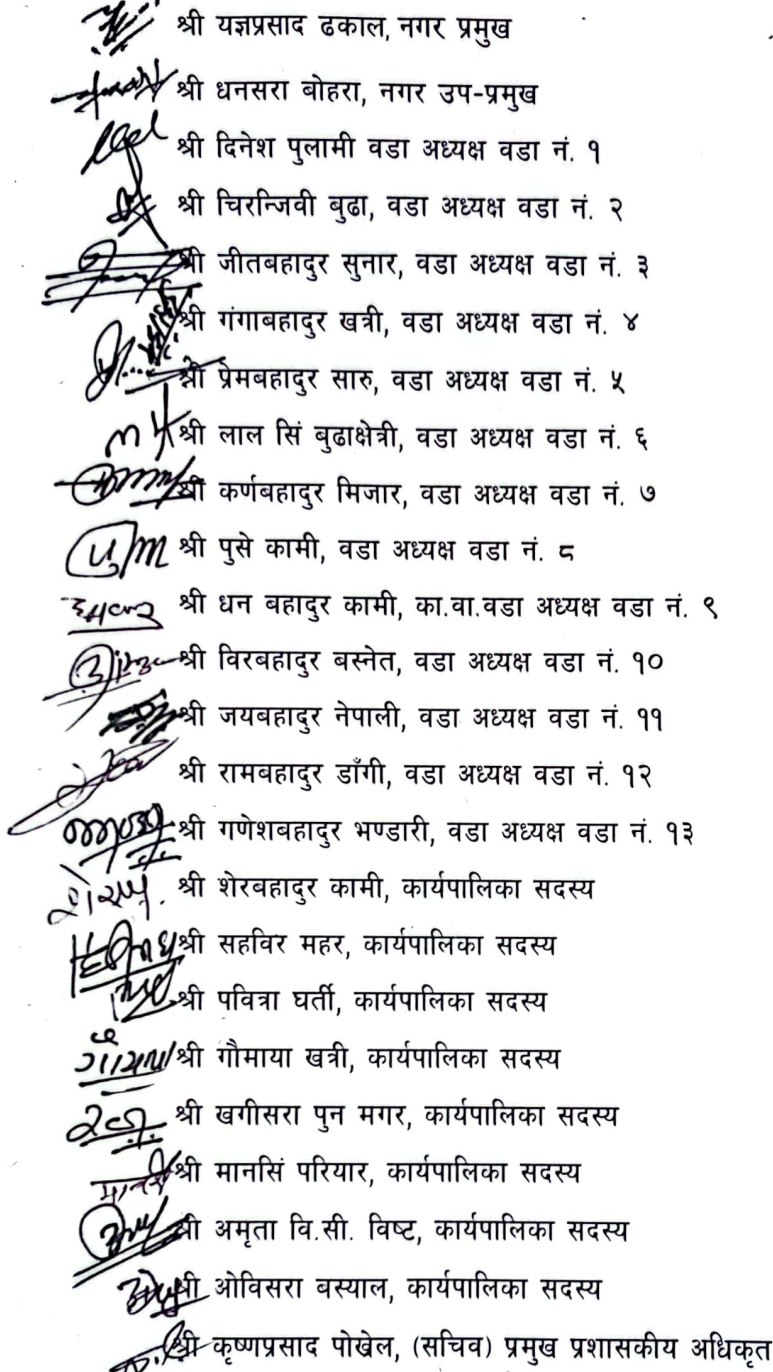 श्री यज्ञप्रसाद ढकाल, नगर प्रमुख
श्री धनसरा बोहरा, नगर उप-प्रमुख
श्री दिनेश पुलामी वडा अध्यक्ष वडा नं. १
श्री चिरन्जिवी बुढा, वडा अध्यक्ष वडा नं. २
श्री जीतबहादुर सुनार, वडा अध्यक्ष वडा नं. ३
श्री गंगाबहादुर खत्री, वडा अध्यक्ष वडा नं. ४
श्री प्रेमबहादुर सारु, वडा अध्यक्ष वडा नं. ५
श्री लाल सिं बुढाक्षेत्री, वडा अध्यक्ष वडा नं. ६
श्री कर्णबहादुर मिजार, वडा अध्यक्ष वडा नं. ७
श्री पुसे कामी, वडा अध्यक्ष वडा नं. ८
श्री धन बहादुर कामी, का.वा.वडा अध्यक्ष वडा नं. ९
श्री विरबहादुर बस्नेत, वडा अध्यक्ष वडा नं. १०
श्री जयबहादुर नेपाली, वडा अध्यक्ष वडा नं. ११
श्री रामबहादुर डाँगी, वडा अध्यक्ष वडा नं. १२
श्री गणेशबहादुर भण्डारी, वडा अध्यक्ष वडा नं. १३
श्री शेरबहादुर कामी, कार्यपालिका सदस्य
श्री सहविर महर, कार्यपालिका सदस्य
श्री पवित्रा घर्ती, कार्यपालिका सदस्य
श्री गौमाया खत्री, कार्यपालिका सदस्य
श्री खगीसरा पुन मगर, कार्यपालिका सदस्य
श्री मानसिं परियार, कार्यपालिका सदस्य
श्री अमृता वि.सी. विष्ट, कार्यपालिका सदस्य
श्री ओविसरा बस्याल, कार्यपालिका सदस्य
श्री कृष्णप्रसाद पोखेल, (सचिव) प्रमुख प्रशासकीय अधिकृत